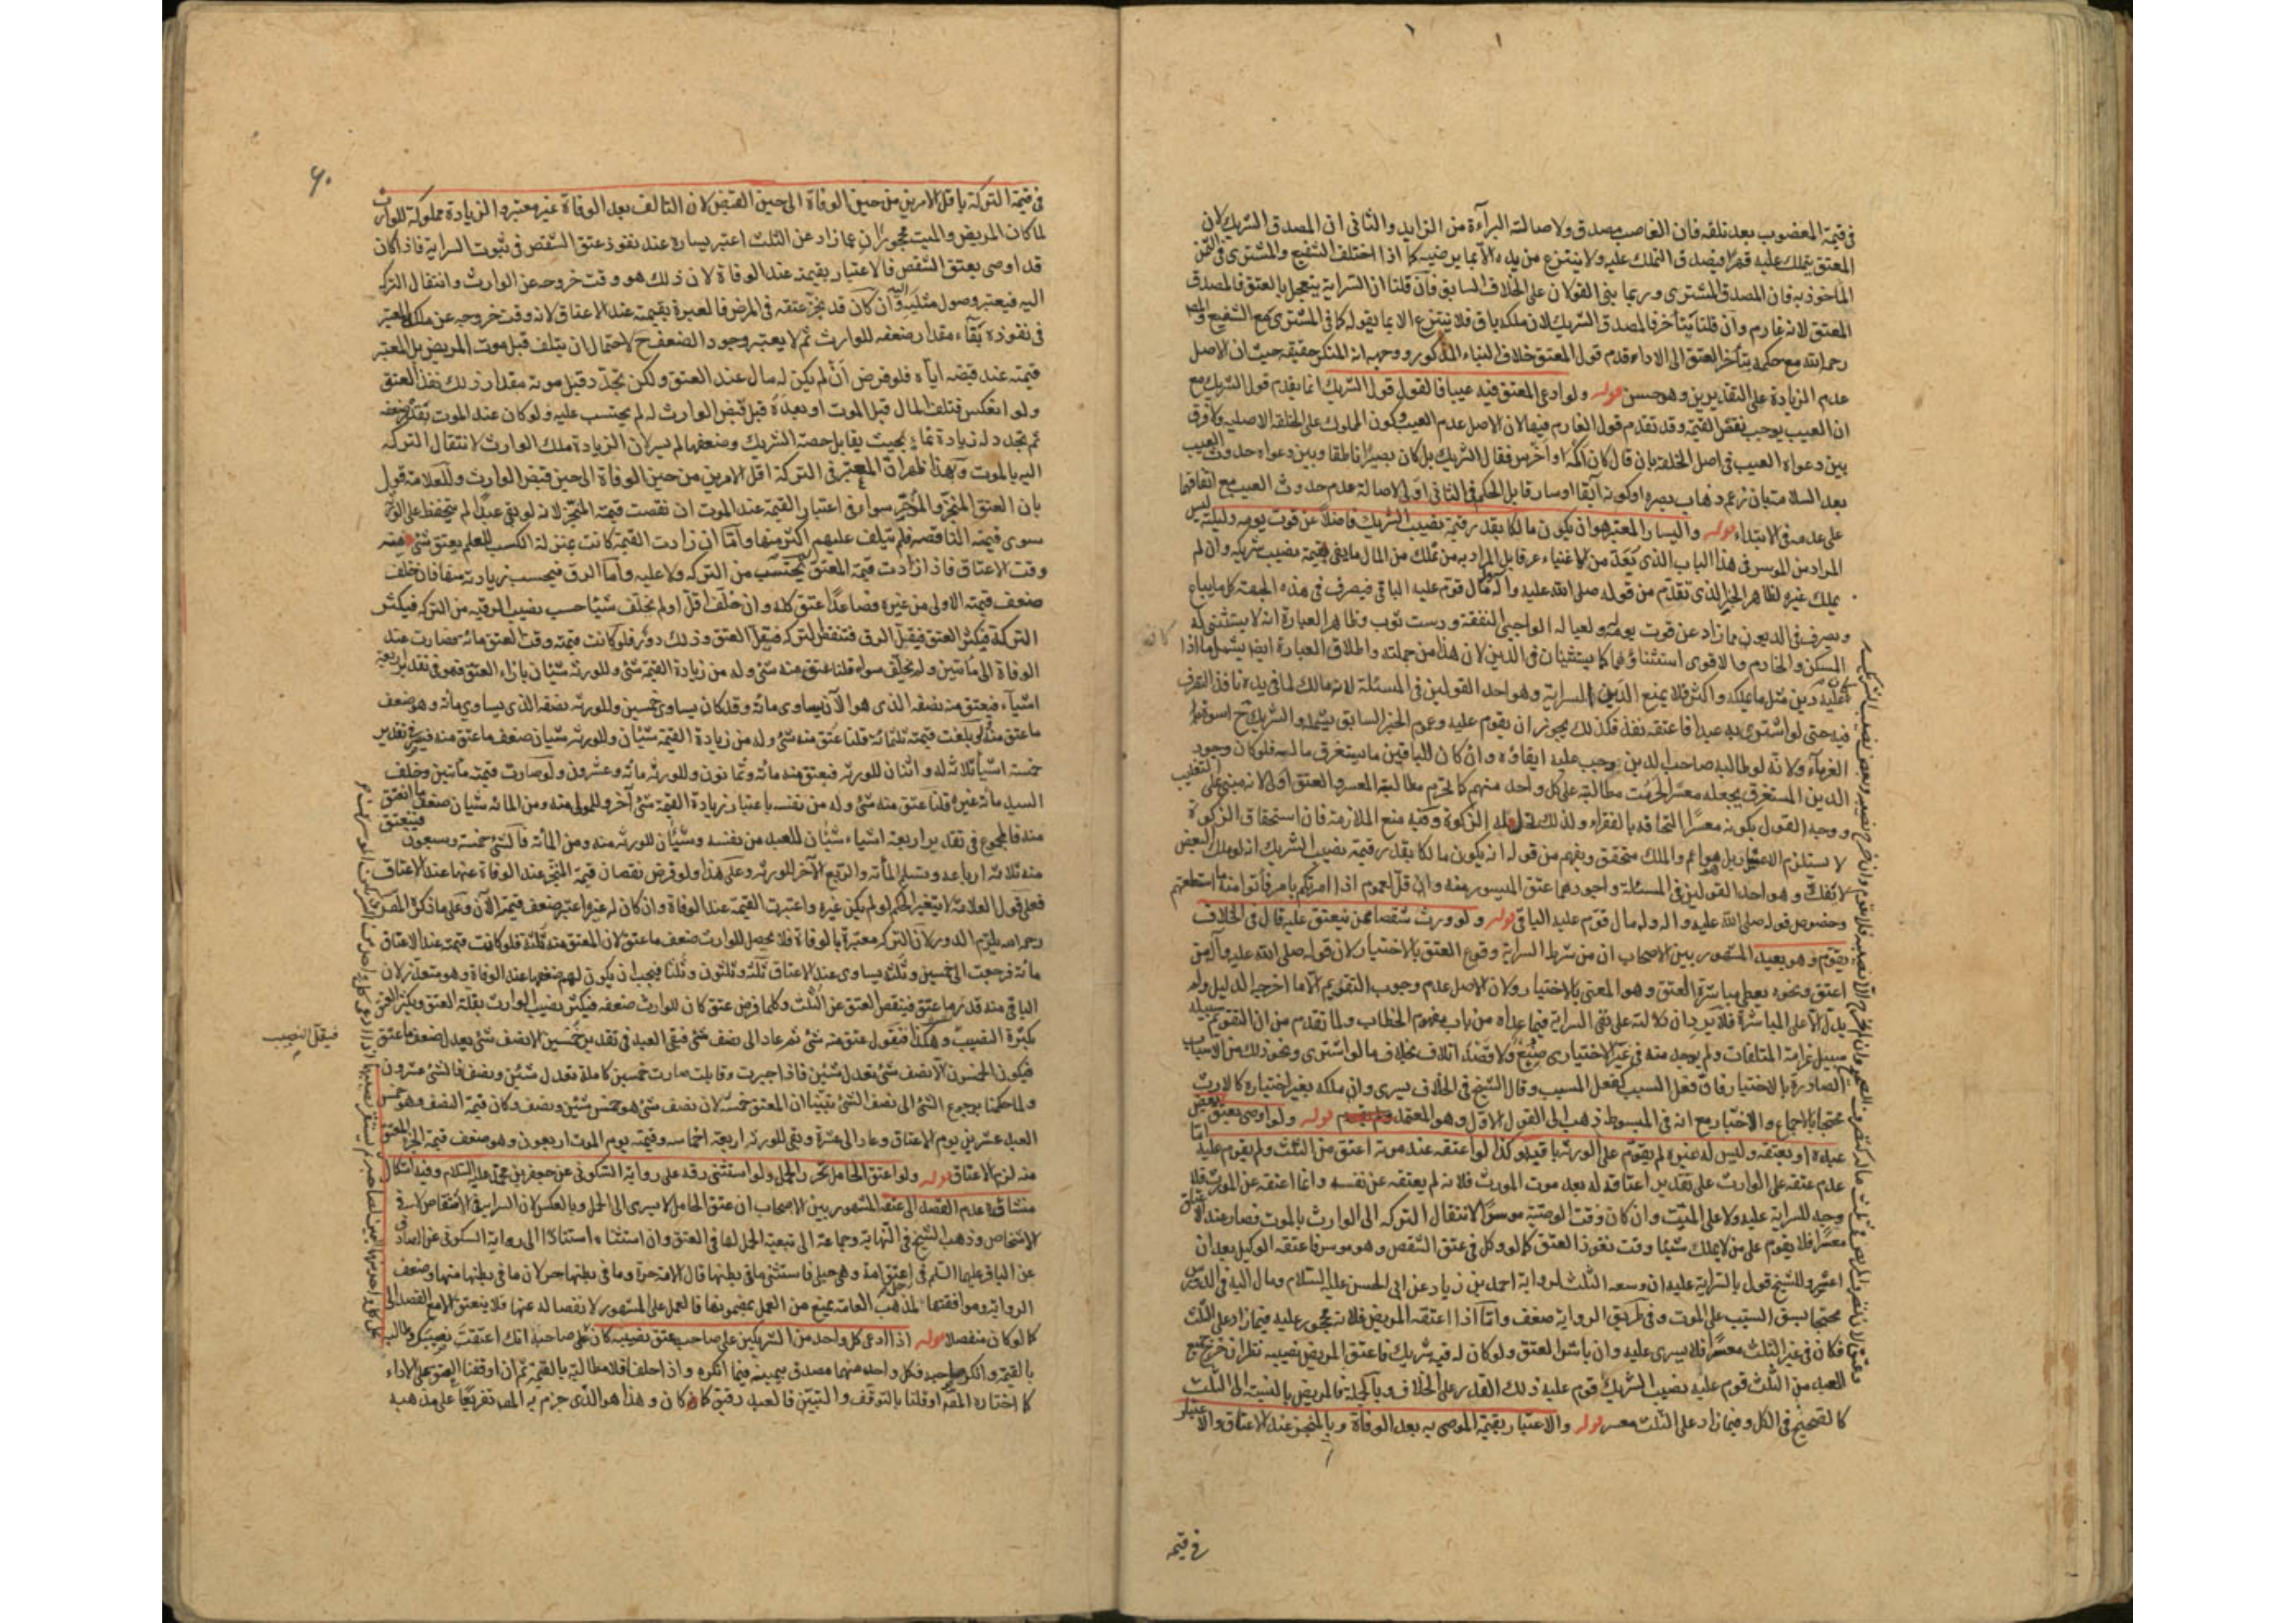 في قيمة المغصوب بعد تلفه فان الغاصب مصدق ولاصالة البرآءة من الزايد والثاني ان المصدق الشريك لان
المعتق يتملك عليه قهرا فيصدق المتملك عليه ولا ينتزع من يده الا بما يرضيه كما اذا اختلف الشفيع والمشتري في الثمن
الماخوذ به فان المصدق المشتري وربما بني القولان على الخلاف السابق فان قلنا ان السراية يتعجل بالعتق فالمصدق
المعتق لانه غارم وان قلنا يتأخر فالمصدق الشريك لان ملكه باق فلا ينتزع الا بما يقوله كما في المشتري مع الشفيع والمص
رحمه الله مع حكمه بتأخر العتق الى الاداء قدم قول المعتق خلاف البناء المذكور ووجهه انه المنكر حقيقة حيث ان الاصل
عدم الزيادة على التقديرين وهو حسن قوله ولو ادعى المعتق فيه عيبا فالقول قول الشريك انما يقدم قول الشريك مع
ان العيب يوجب نقص القيمة وقد تقدم قول الغارم فيها لان الاصل عدم العيب وكون المملوك على الخلقة الاصلية ولا فرق
بين دعواه العيب في اصل الخلقة بان قال كان اكمه او اخرس فقال الشريك بل كان بصيرا ناطقا وبين دعواه حدوث العيب
بعد السلامة بان زعم ذهاب بصره او كونه آبقا او سارقا بل الحكم في الثاني اولى لاصالة عدم حدوث العيب مع اتفاقهما
على عدمه في الابتداء قوله واليسار المعتبر هو ان يكون مالكا بقدر قيمة نصيب الشريك فاضلا عن قوت يومه وليلته ليس
المراد من الموسر في هذا الباب الذي يعد من الاغنياء عرفا بل المراد به من يملك من المال ما يفي بقيمة نصيب شريكه وان لم
يملك غيره لظاهر الخبر الذي تقدم من قوله صلى الله عليه واله وله مال قوم عليه الباقي فيصرف في هذه الجهة كل ما يباه
ويصرف في الديون مما زاد عن قوت يومه له ولعياله الواجبي النفقة ودست ثوب وظاهر العبارة انه لا يستثنى له
المسكن والخادم والاقوى استثناؤهما كما يستثنيان في الدين لان هذا من جملته واطلاق العبارة ايضا يشمل ما اذا
كان عليه دين مثل ما يملكه واكثر فلا يمنع الدين السراية وهو احد القولين في المسئلة لانه مالك لما في يده نافذ التصرف
فيه حتى لو اشترى به عبدا فاعتقه نفذ فكذلك يجوز ان يقوم عليه وعموم الخبر السابق يشمله والشريك ح اسوة
الغرمآء ولانه لو طالبه صاحب الدين وجب عليه ايفاؤه وان كان للباقين ما يستغرق ماله فلو كان وجود
الدين المستغرق يجعله معسرا لحرمت مطالبته على كل واحد منهم كما تحرم مطالبة المعسر والعتق اولى لانه مبني على التغليب
ووجه القول بكونه معسرا التحاقه بالفقراء ولذلك الزكوة وفيه منع الملازمة فان استحقاق الزكوة
لا يستلزم الاعسار بل هو اعم والملك متحقق ويفهم من قوله ان يكون مالكا بقدر قيمة نصيب الشريك انه لو ملك البعض
لا يفك وهو احد القولين في المسئلة واجودهما عتق الميسور منه وان قل لعموم اذا امرتكم بامر فأتوا منه ما استطعتم
وخصوص قوله صلى الله عليه واله وله مال قوم عليه الباقي قوله ولو ورث شقصا ممن ينعتق عليه قال في الخلاف
يقوم وهو بعيد المشهور بين الاصحاب ان من شرط السراية وقوع العتق بالاختيار لان قوله صلى الله عليه وآله من
اعتق ونحوه يعطي مباشرة العتق وهو المعني بالاختيار ولان الاصل عدم وجوب التقويم الا ما اخرجه الدليل ولم
يدل الا على المباشرة فلا يرد ان دلالته على نفي السراية فيما عداه من باب مفهوم الخطاب ولما تقدم من ان التقويم سبيله
سبيل غرامة المتلفات ولم يوجد منه في غير الاختياري صنع ولا قصد اتلاف بخلاف ما لو اشترى ونحو ذلك من الاسباب
الصادرة بالاختيار فان فعل السبب كفعل المسبب وقال الشيخ في الخلاف يسري وان ملكه بغير اختياره كالارث
محتجا بالاجماع والاخبار مع انه في المبسوط ذهب الى القول الاول وهو المعتمد قوله ولو اوصى بعتق بعض
عبده او بعتقه وليس له غيره لم يقوم على الورثة باقيه وكذا لو اعتقه عند موته اعتق من الثلث ولم يقوم عليه اما
عدم عتقه على الوارث على تقدير اعتاقه له بعد موت المورث فلانه لم يعتقه عن نفسه وانما اعتقه عن المورث فلا
وجه للسراية عليه ولا على الميت وان كان وقت الوصية موسرا لانتقال التركة الى الوارث بالموت فصار عند الاعتاق
معسرا فلا يقوم على من لا يملك شيئا وقت نفوذ العتق كما لو وكل في عتق الشقص وهو موسر فاعتقه الوكيل بعد ان
اعسر وللشيخ قول بالسراية عليه ان وسعه الثلث لرواية احمد بن زياد عن ابي الحسن عليه السلام ومال اليه في الدروس
محتجا بسبق السبب على الموت وفي طريق الرواية ضعف وامّا اذا اعتقه المريض فلانه محجور عليه فيما زاد على الثلث
فكان في غير الثلث معسرا فلا يسري عليه وان باشر العتق ولو كان له فيه شريك فاعتق المريض نصيبه نظر ان خرج جميع
العبد من الثلث قوم عليه نصيب الشريك قوم عليه ذلك القدر على الخلاف وبالجملة فالمريض بالنسبة الى الثلث
كالصحيح في الكل وفيما زاد على الثلث معسر قوله والاعتبار بقيمة الموصى به بعد الوفاة وبالمنجز عند الاعتاق والاعتبار
في قيمة
٦٠
في قيمة التركة باقل الامرين من حين الوفاة الى حين القبض لان التالف بعد الوفاة غير معتبر والزيادة مملوكة للوارث
لما كان المريض والميت محجورا عن ما زاد عن الثلث اعتبر يساره عند نفوذ عتق الشقص في ثبوت السراية فاذا كان
قد اوصى بعتق الشقص فالاعتبار بقيمته عند الوفاة لان ذلك هو وقت خروجه عن الوارث وانتقال التركة
اليه فيعتبر وصول مثليه اليه وان كان قد نجز عتقه في المرض فالعبرة بقيمته عند الاعتاق لانه وقت خروجه عن ملك والمعتبر
في نفوذه بقآء مقدار ضعفه للوارث ثم لا يعتبر وجود الضعف ح لاحتمال ان يتلف قبل موت المريض بل المعتبر
قيمته عند قبضه اياه فلو فرض ان لم يكن له مال عند العتق ولكن تجدد قبل موته مقدار ذلك نفذ العتق
ولو انعكس فتلف المال قبل الموت او بعده قبل قبض الوارث له لم يحتسب عليه ولو كان عند الموت بقدر ضعفه
ثم تجدد له زيادة نماء بحيث يقابل حصة الشريك وضعفها لم يسر لان الزيادة ملك الوارث لانتقال التركة
اليه بالموت وبهذا ظهر ان المعتبر في التركة اقل الامرين من حين الوفاة الى حين قبض الوارث وللعلامة قول
بان العتق المنجز والمؤخر سواء في اعتبار القيمة عند الموت ان نقصت قيمة المنجز لانه لو بقي عبدا لم يتحفظ على الورثة
سوى قيمته الناقصة فلم يتلف عليهم اكثر منها وامّا ان زادت القيمة كانت بمنزلة الكسب للعلم بعتق شئ منه
وقت الاعتاق فاذا زادت قيمة المعتق لم يحتسب من التركة ولا عليه وامّا الرق فيحسب زيادته منها فان خلف
ضعف قيمته الاولى من غيره فصاعدا عتق كله وان خلف اقل او لم يخلف شيئا حسب نصيب الرقية من التركة فيكثر
التركة فيكثر العتق فيقل الرق فتنقص التركة فيقل العتق وذلك دور فلو كانت قيمته وقت العتق مائة فصارت عند
الوفاة الى مأتين ولم يخلف سواه قلنا عتق منه شئ وله من زيادة القيمة شئ وللورثة شيئان بازاء العتق فهو في تقدير اربعة
اشيآء فيعتق منه نصفه الذي هو الآن يساوي مائة وقد كان يساوي خمسين وللورثة نصفه الذي يساوي مائة وهو ضعف
ما عتق منه ولو بلغت قيمته ثلثمائة قلنا عتق منه شئ وله من زيادة القيمة شيئان وللورثة شيئان ضعف ما عتق منه فيصير في تقدير
خمسة اشيآ ثلاثة له واثنان للورثة فيعتق منه مائة وثمانون وللورثة مائة وعشرون ولو صارت قيمته مأتين وخلف
السيد مائة غيره قلنا عتق منه شئ وله من نفسه باعتبار زيادة القيمة شئ آخر وللمولى منه ومن المائة شيئان ضعف ما انعتق
منه فالمجموع في تقدير اربعة اشياء شيئان للعبد من نفسه وشيئان للورثة منه ومن المأة فالشئ خمسة وسبعون فينعتق
منه ثلاثة ارباعه وتسلم المأة والربع الآخر للورثة وعلى هذا ولو فرض نقصان قيمة المنجز عند الوفاة عنها عند الاعتاق
فعلى قول العلامة لا يتغير الحكم لو لم يكن غيره واعتبرت القيمة عند الوفاة وان كان له غيره اعتبر ضعف قيمته الآن وعلى ما ذكره المص
رحمه الله يلزم الدور لان التركة معتبرة بالوفاة فلا يحصل للوارث ضعف ما عتق لان المعتق منه ثلثه فلو كانت قيمته عند الاعتاق
مائة فرجعت الى خمسين وثلثه يساوي عند الاعتاق ثلثة وثلثون وثلثا فيجب ان يكون لهم ضعفها عند الوفاة وهو متعذر لان
الباقي منه قدر ما عتق فينقص العتق عن الثلث وكلما فرض عتق كان للوارث ضعفه فيكثر نصيب الوارث بقلة العتق ويكثر العتق
بكثرة النصيب وهكذا فنقول عتق منه شئ ثم عاد الى نصف شئ فبقي العبد في تقدير خمسين الا نصف شئ يعدل ضعف ما عتق
فيقل النصيب
فيكون الخمسون الا نصف شئ تعدل شيئين فاذا جبرت وقابلت صارت خمسين كاملة تعدل شيئين ونصف فالشئ عشرون
ولما حكمنا برجوع الشئ الى نصف الشئ تبينا ان المعتق خمسه لان نصف شئ هو خمس شيئين ونصف وكان قيمة النصف وهو خمس
العبد عشرين يوم الاعتاق وعاد الى عشرة وبقي للورثة اربعة اخماسه وقيمته يوم الموت اربعون وهو ضعف قيمة الجزء المعتق
منه يوم الاعتاق قوله ولو اعتق الحامل تحرر الحمل ولو استثنى رقه على رواية السكوني عن جعفر بن محمد عليه السلام وفيه اشكال
منشاؤه عدم القصد الى عتقه المشهور بين الاصحاب ان عتق الحامل لا يسري الى الحمل وبالعكس لان السراية في الاشقاص لا في
الاشخاص وذهب الشيخ في النهاية وجماعة الى تبعية الحمل لها في العتق وان استثناه استنادا الى رواية السكوني عن الصادق
عن الباقر عليهما السلام في رجل اعتق امة وهي حبلى فاستثنى ما في بطنها قال الامة حرة وما في بطنها حر لان ما في بطنها منها وضعف
الرواية وموافقتها لمذهب العامة يمنع من العمل بمضمونها فالعمل على المشهور لانفصاله عنها فلا ينعتق الا مع القصد الى
كما لو كان منفصلا قوله اذا ادعى كل واحد من الشريكين على صاحبه عتق نصيبه كان على صاحبه انك اعتقت نصيبك وطالب
بالقيمة وانكر صاحبه فكل واحد منهما مصدق بيمينه فيما انكره واذ احلفا فلا مطالبة بالقيمة ثم ان اوقفنا العتق على الاداء
كما اختاره المص او قلنا بالتوقف والتبين فالعبد رقيق كما كان وهذا هو الذي جزم به المص تفريعا على مذهبه